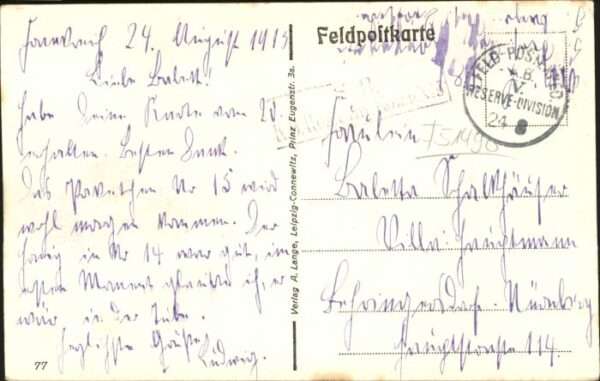 Frankreich 24. August 1915
Liebe Babett!
Habe Deine Karte vom 20.
erhalten. Besten Dank.
Das Paketchen Nr 15 wird
wohl morgen kommen. Der
Honig in Nr 14 war gut, im
ersten Moment glaubte ich, er
wär in der Tube.
Herzlichste Grüße
Ludwig.
77
Verlag A. Lange, Leipzig-Connewitz, Prinz Eugenstr. 3a.
Feldpostkarte
FELD-POST
B.
V.
RESERVE-DIVISION
24 8
Fräulein
Babetta Schalkhäußer
Villa: Hauptmann
Behringersdorf-Nürnberg
Hauptstrasse 114.